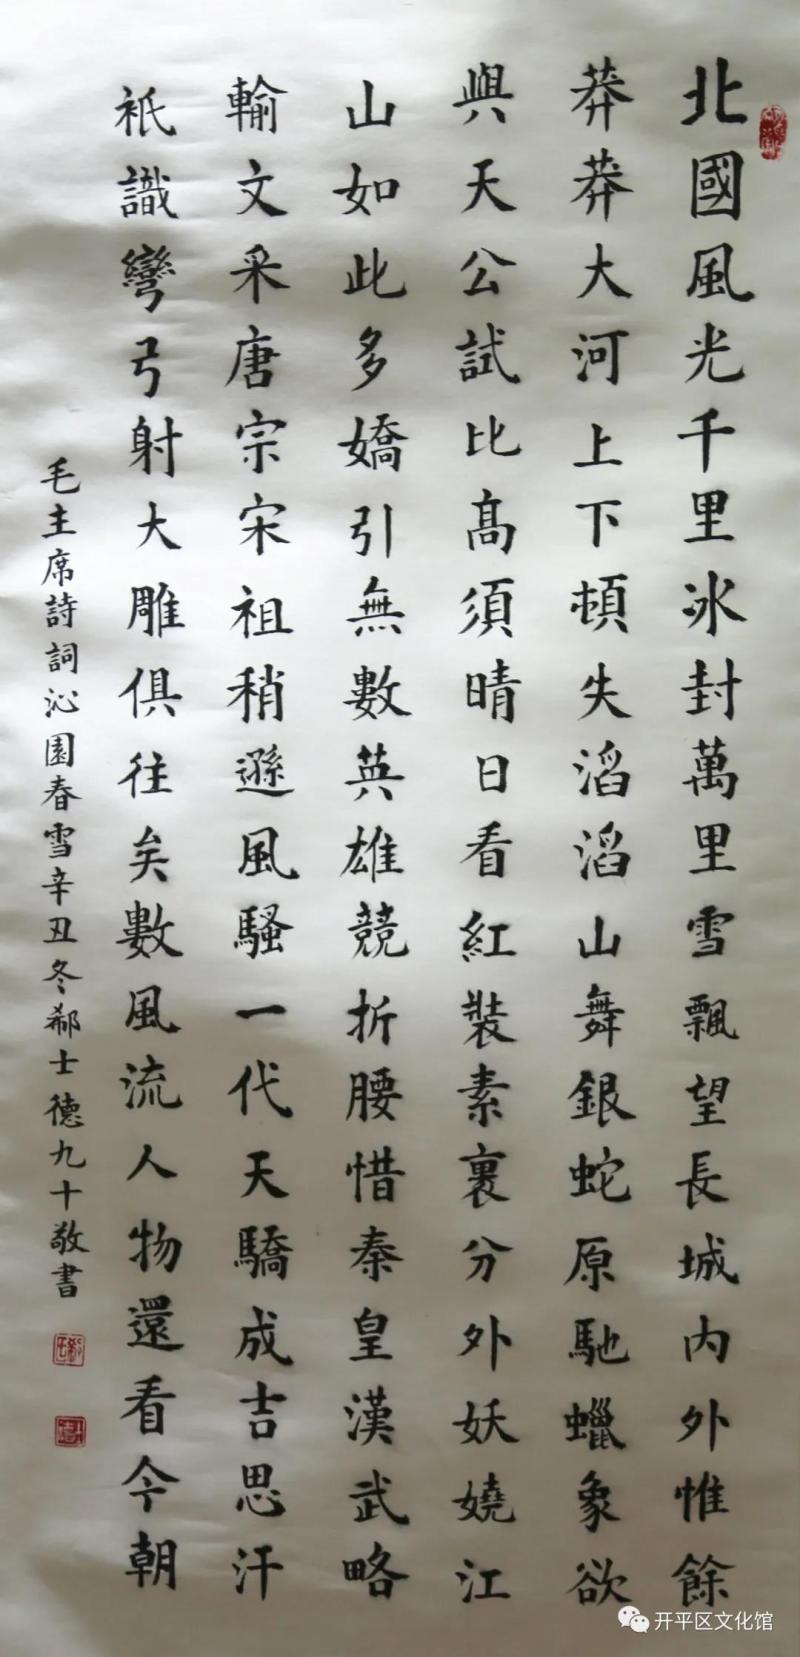 北國風光千里冰封萬里雪飄望長城内外惟餘
莽莽大河上下頓失滔滔山舞銀蛇原馳蠟象欲
與天公試比高須晴日看紅裝素裹分外妖嬈江
山如此多嬌引無數英雄競折腰惜秦皇漢武略
輸文采唐宗宋祖稍遜風騷一代天驕成吉思汗
祇識彎弓射大雕俱往矣數風流人物還看今朝
毛主席詩詞沁園春雪辛丑冬郗士德九十敬書
开平区文化馆